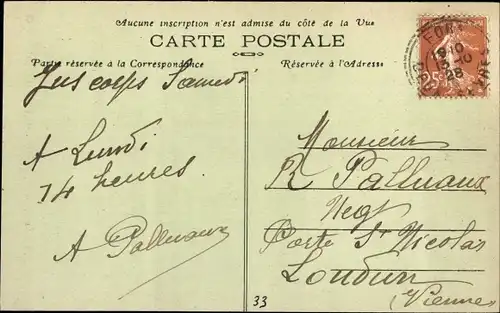 Aucune inscription n'est admise du côté de la Vue
CARTE POSTALE
Partie réservée à la Correspondance
Réservée à l'Adresse
19 10
13-10
28
25
corps Samedi
A Lundi
14 heures.
A Palluaux
Monsieur
R Palluaux
Negt
Porte St Nicolas
Loudun
(Vienne)
33